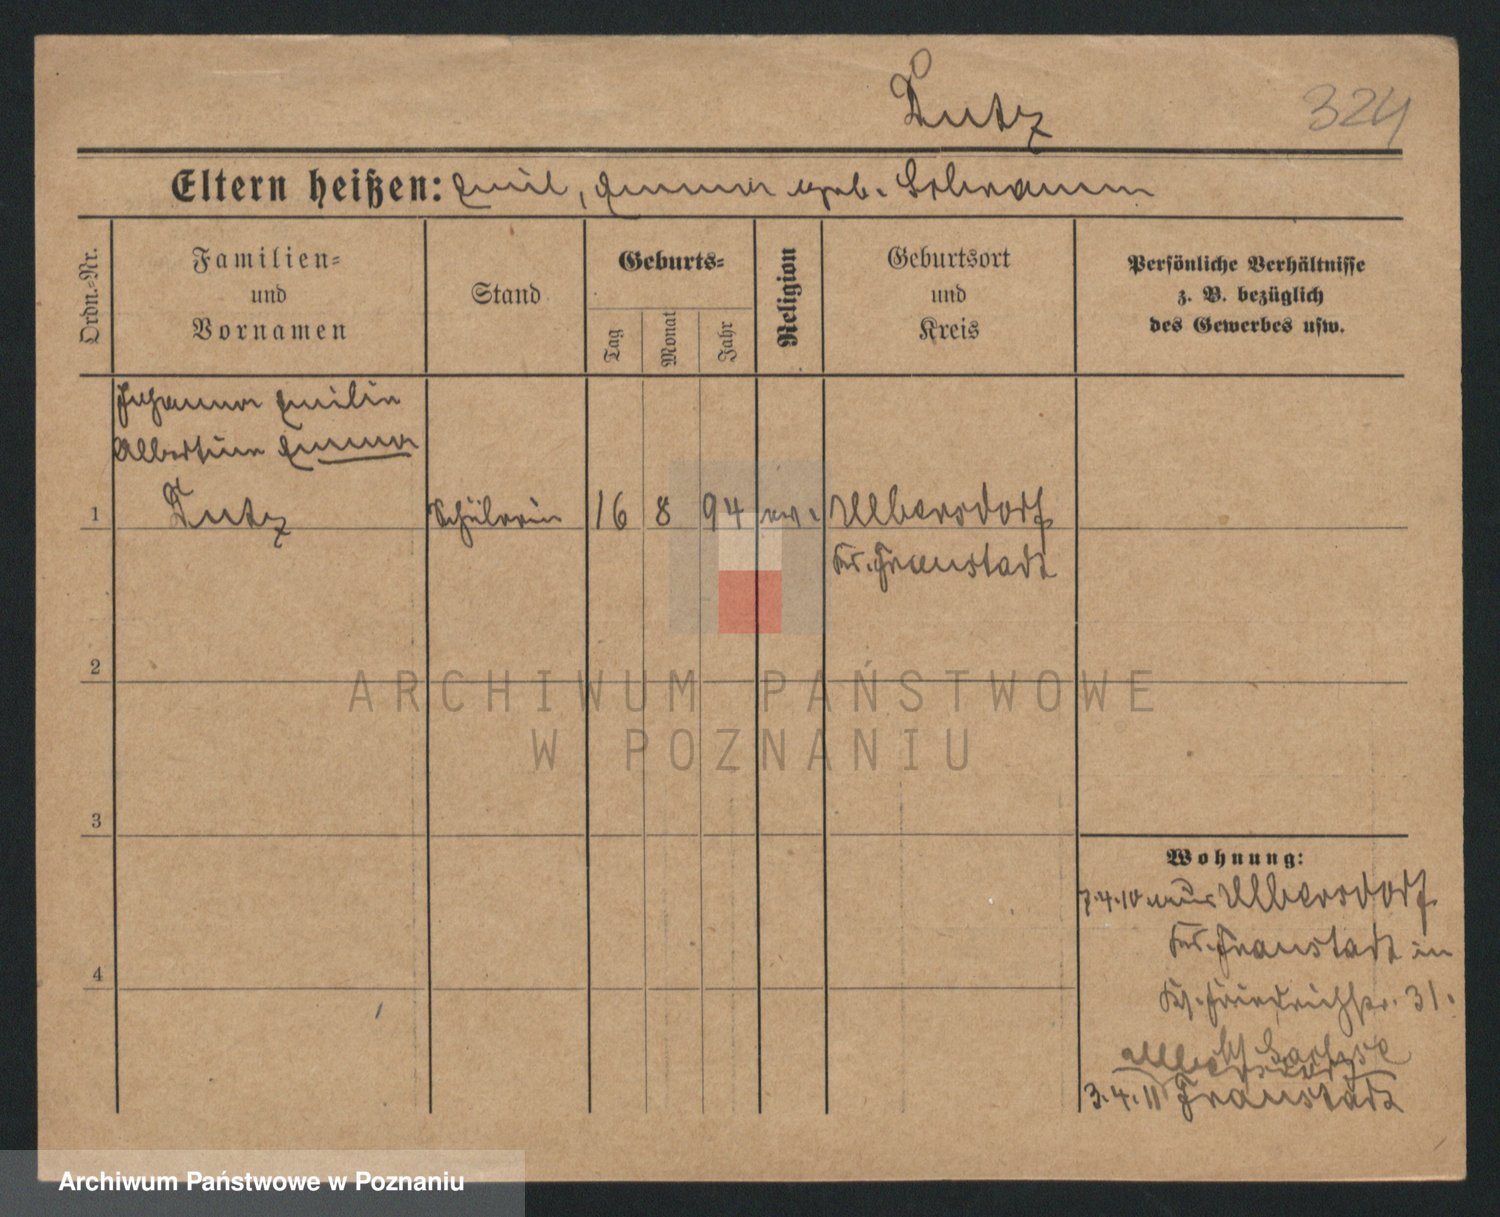 Lutz
324
Eltern heißen: Emil, Emma geb. Schramm
Ordn.-Nr.
Familien-
und
Vornamen
Stand
Geburts-
Tag
Monat
Jahr
Religion
Geburtsort
und
Kreis
Persönliche Verhältnisse
z. B. bezüglich
des Gewerbes usw.
Johanna Emilie
Albertine Emma
1
Lutz
Schülerin
16
8
94
ev.
Ulbersdorf
Kr. Fraustadt
2
3
4
Wohnung:
7.4.10 aus Ulbersdorf
Kr. Fraustadt in
Friedrichstr. 31.
3.4.11 Fraustadt
ARCHIWUM PAŃSTWOWE
W POZNANIU
Archiwum Państwowe w Poznaniu